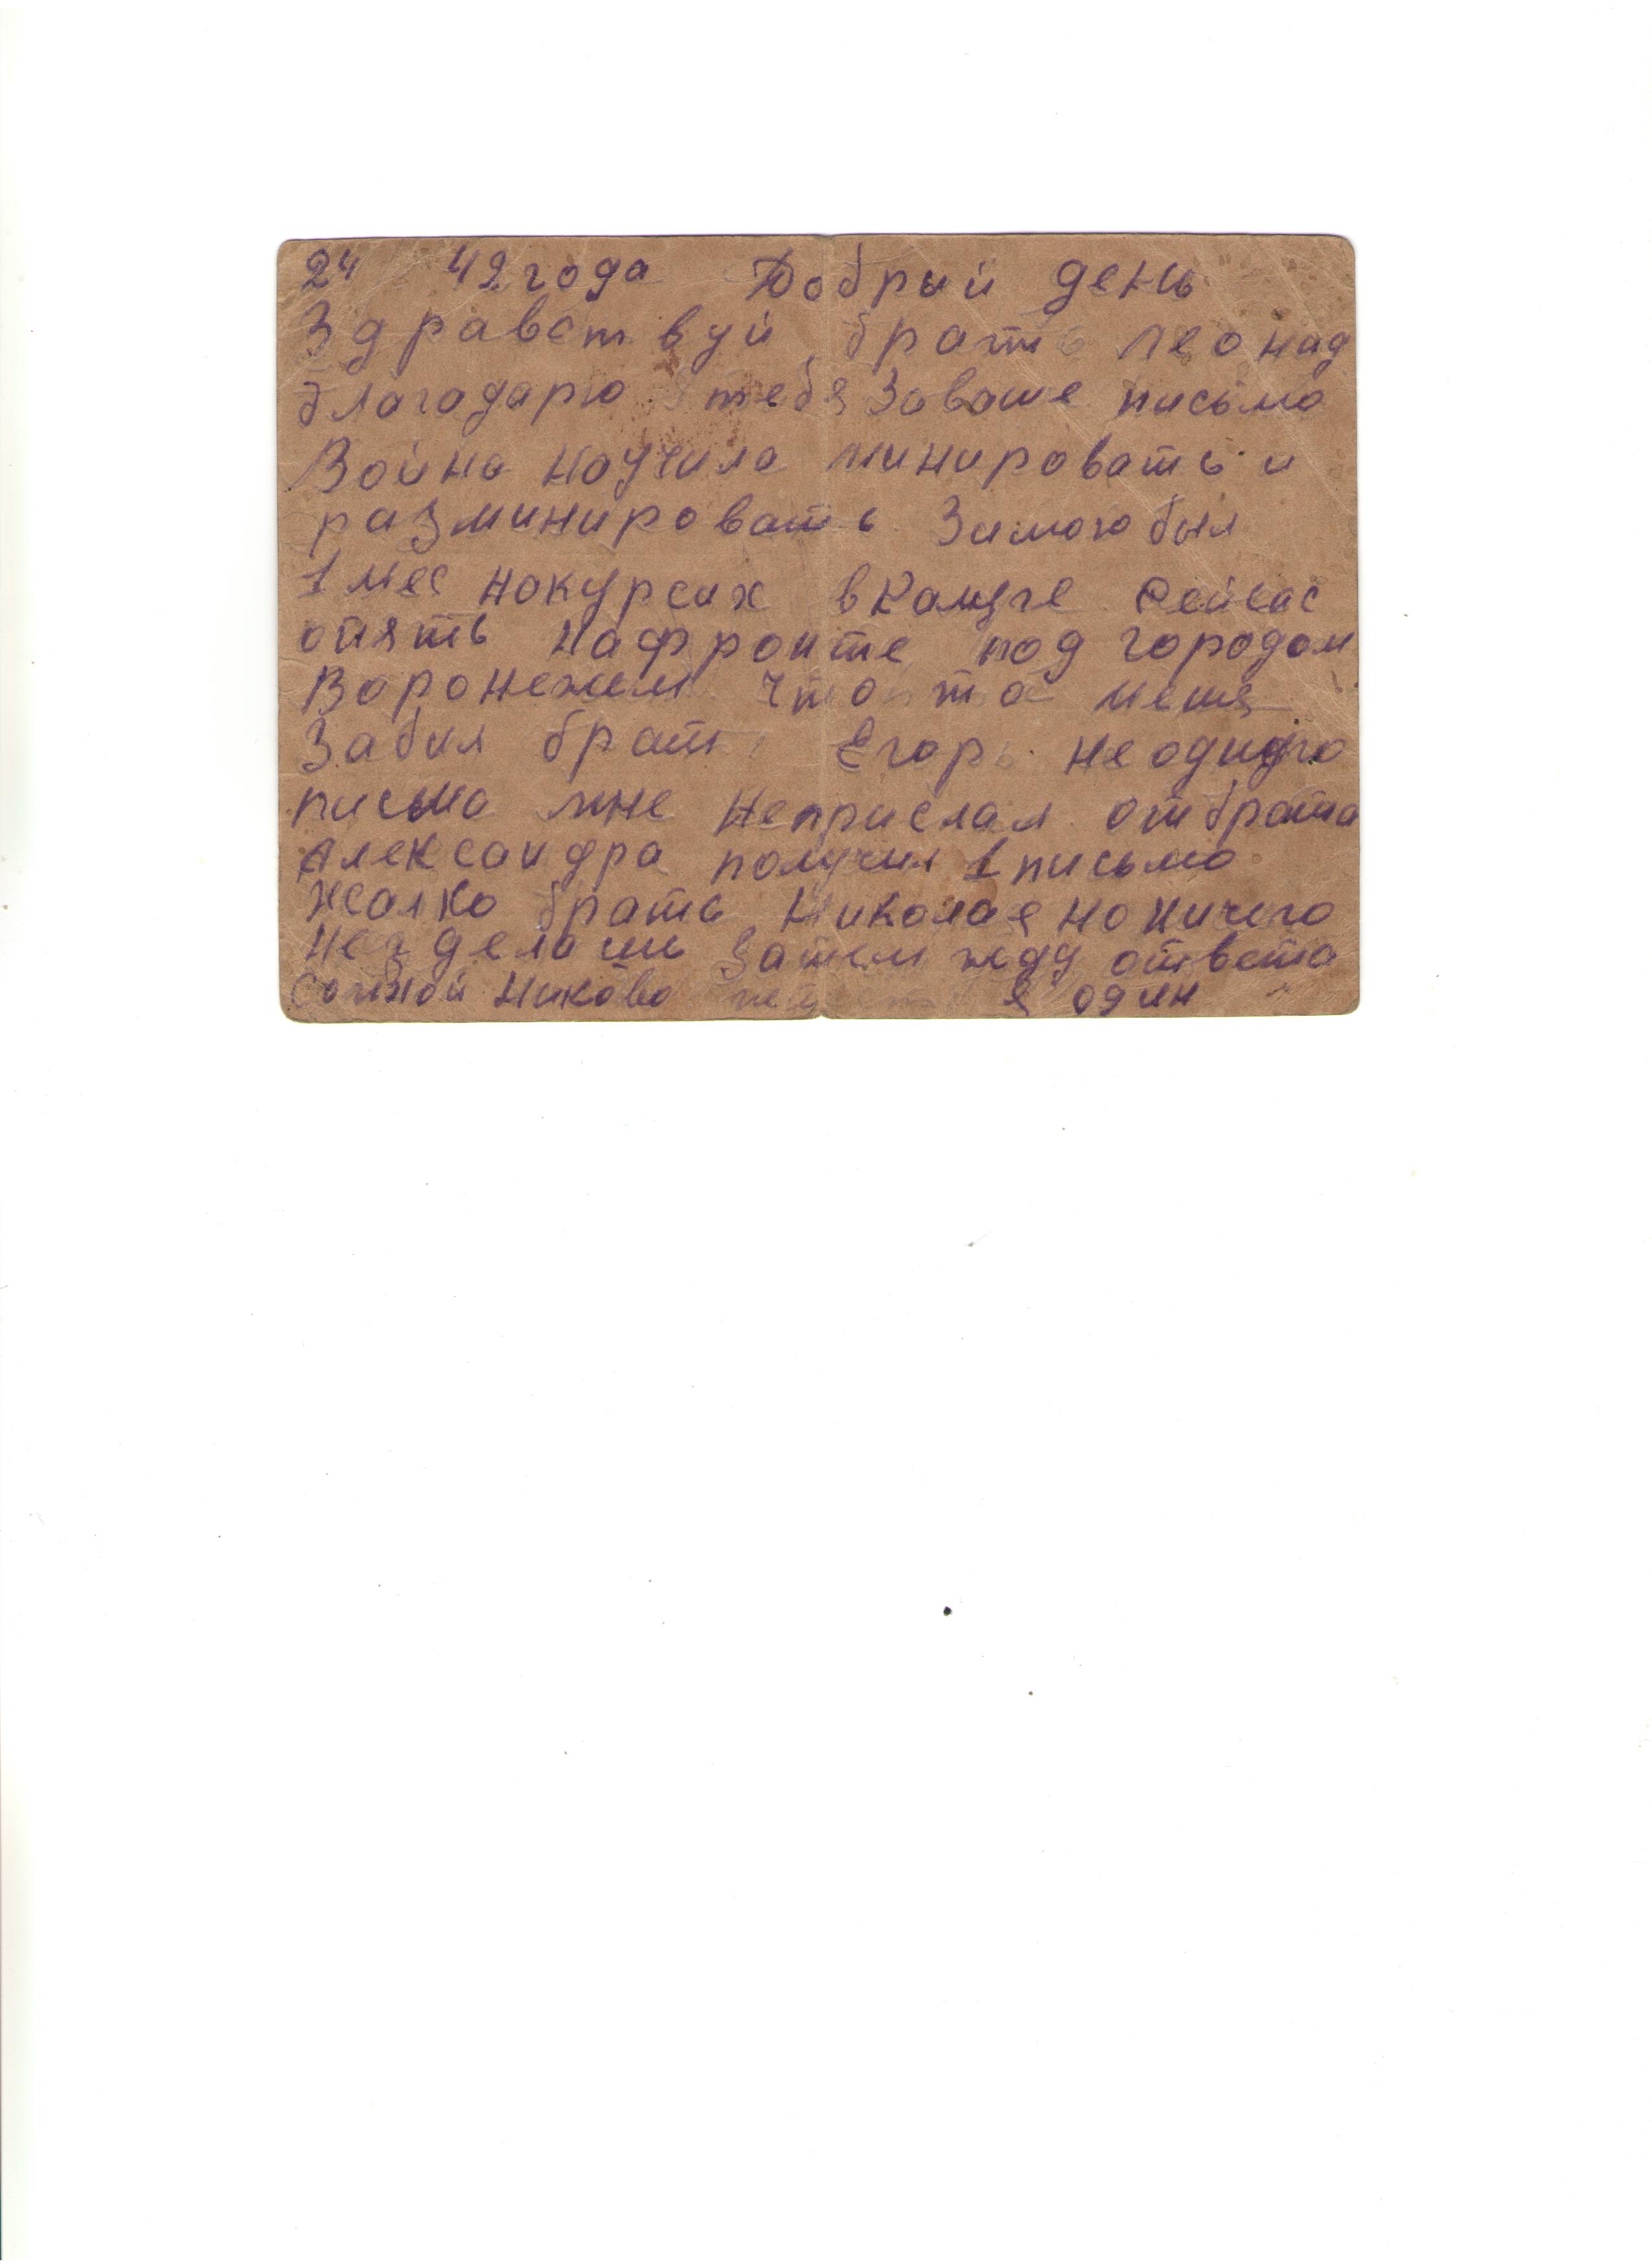 24 42 года Добрый день
Здравствуй брать леонид
благодарю тебя За ваше письмо
Война научила минировать и
разминировать Зимою был
1 мес накурсах вКалуге Сейсас
опять нафронте под городом
Воронежем что то меня
Забил брат Егор неодного
письма мне неприслал отбрата
Александра получил 1 письмо
Жалко брать Николая но ничего
не делаиш Затем жду ответа
сомной никово нет я один